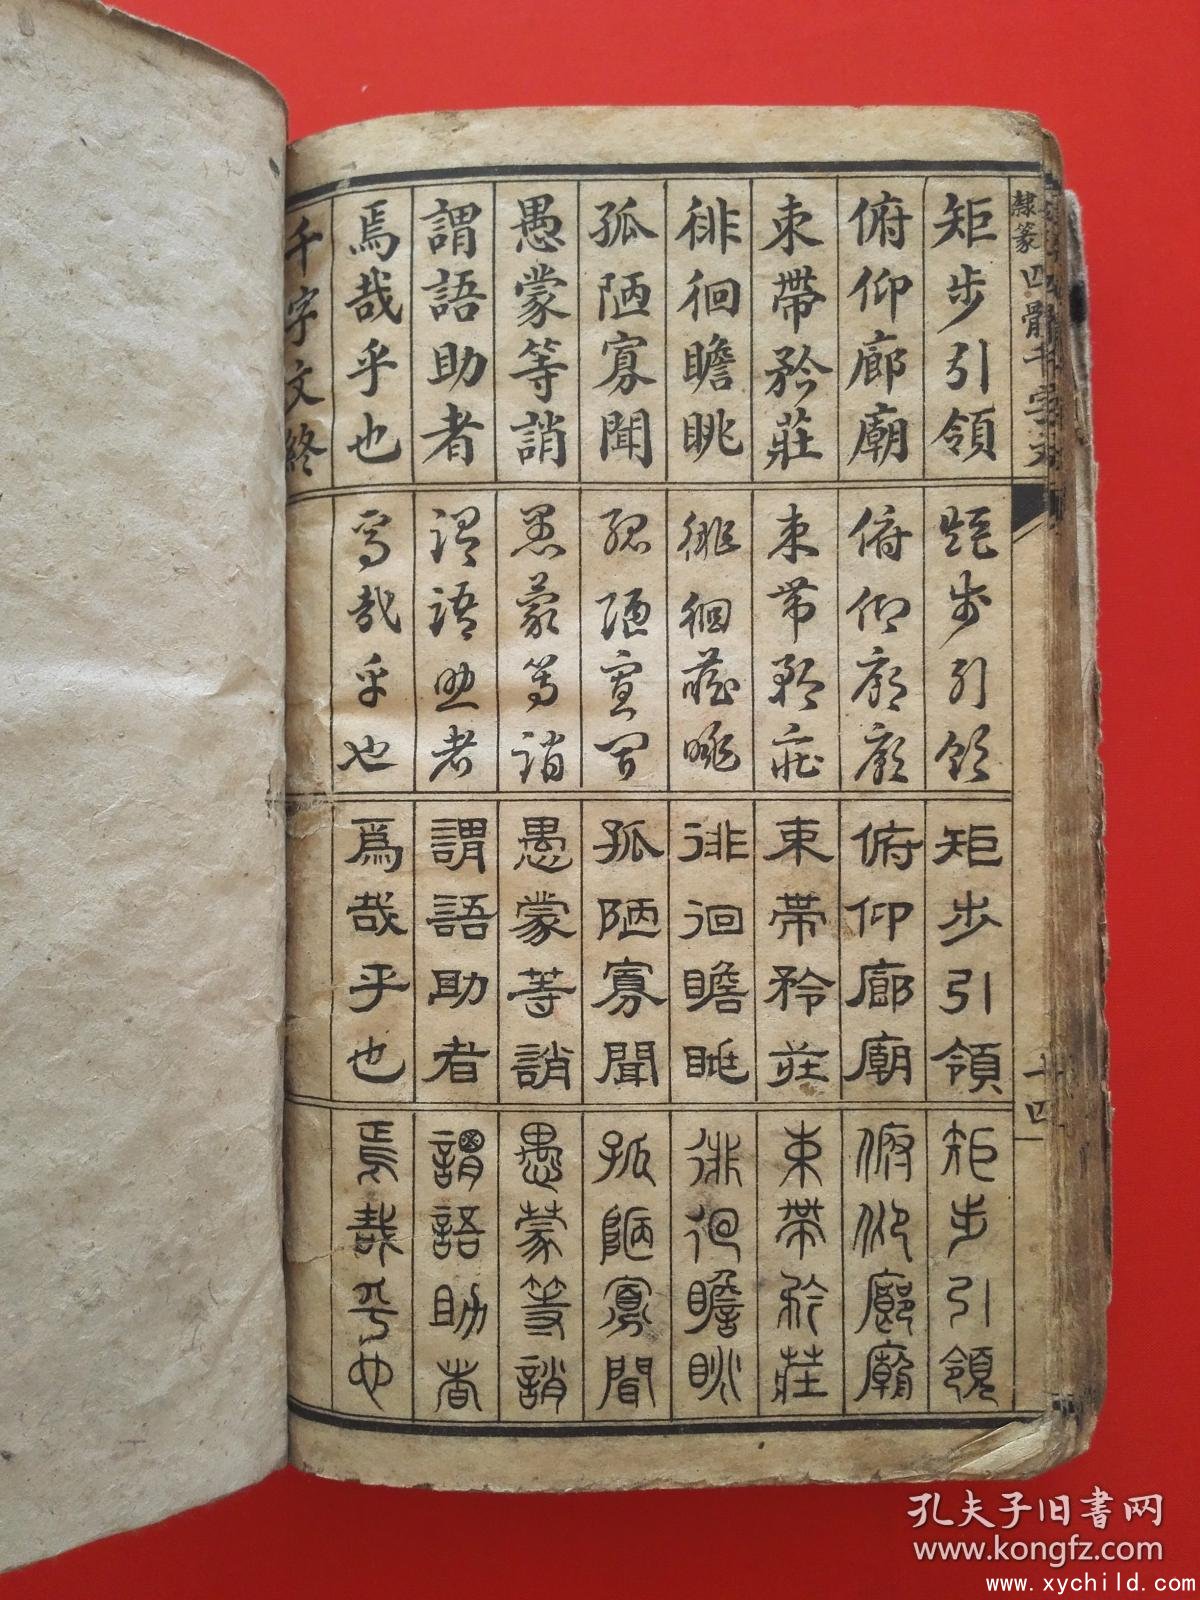 隸篆四體千字文
十四
矩步引領
俯仰廊廟
束帶矜莊
徘徊瞻眺
孤陋寡聞
愚蒙等誚
謂語助者
焉哉乎也
千字文終
矩步引領
俯仰廊廟
束帶矜莊
徘徊瞻眺
孤陋寡聞
愚蒙等誚
謂語助者
焉哉乎也
矩步引領
俯仰廊廟
束帶矜莊
徘徊瞻眺
孤陋寡聞
愚蒙等誚
謂語助者
焉哉乎也
矩步引領
俯仰廊廟
束帶矜莊
徘徊瞻眺
孤陋寡聞
愚蒙等誚
謂語助者
焉哉乎也
孔夫子旧书网
www.kongfz.com
www.xychild.com